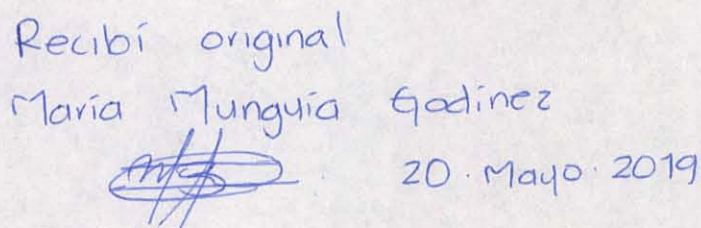 Recibí original
María Munguía Godínez
20 · Mayo · 2019